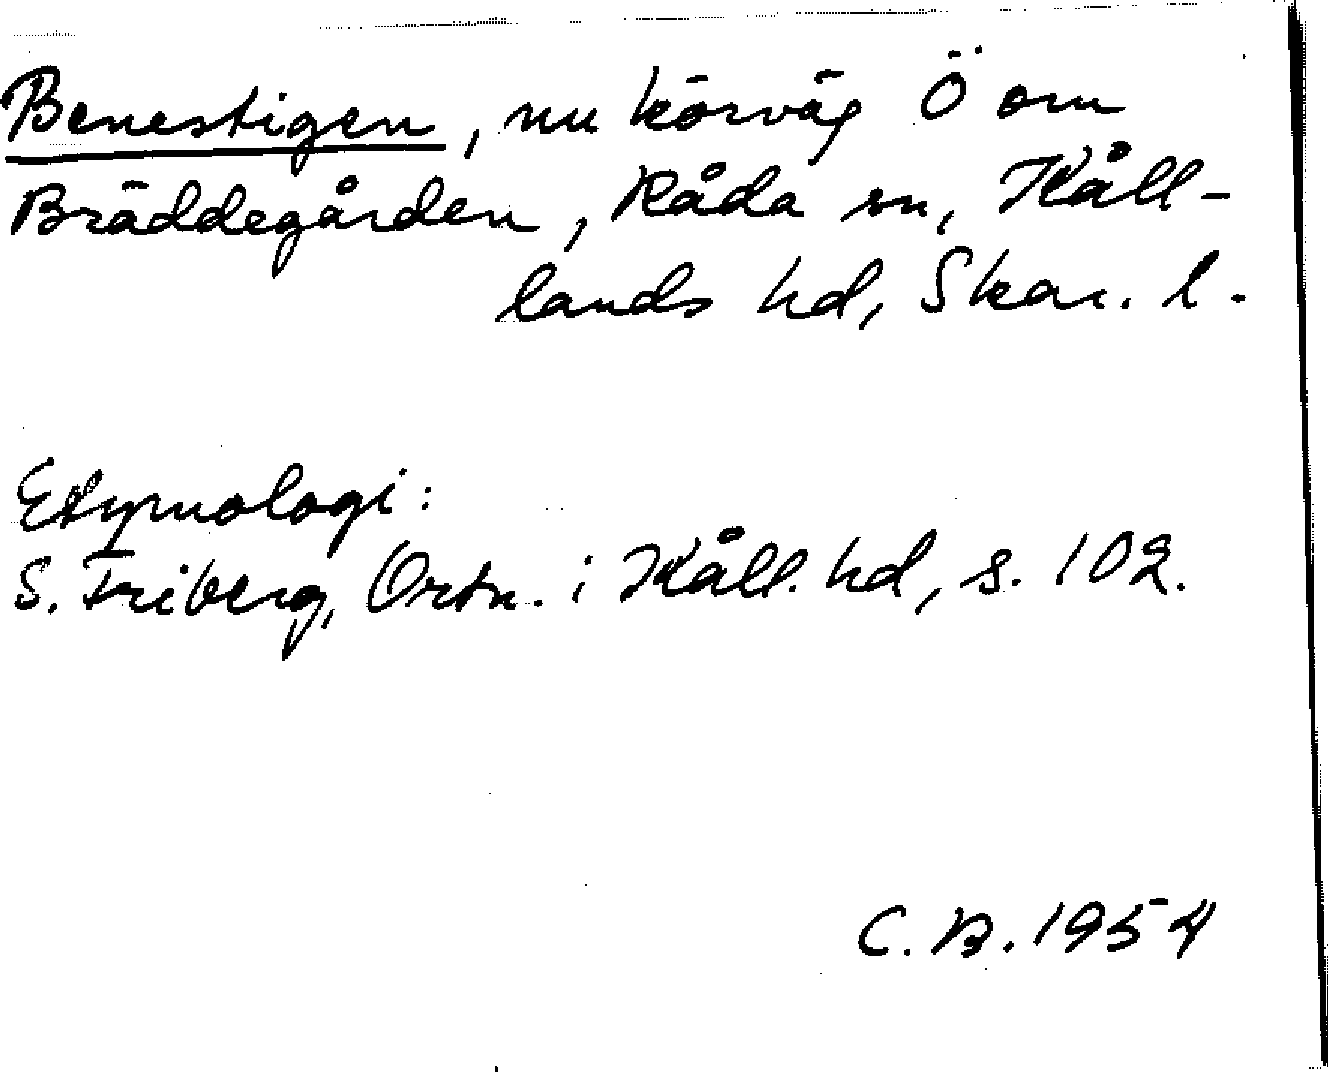 Benestigen, nu körväg Ö om
Bräddegården, Råda sn, Kåll-
lands hd, Skar. l.
Etymologi:
S. Friberg, Ortn. i Kåll. hd, s. 102.
C. B. 1954